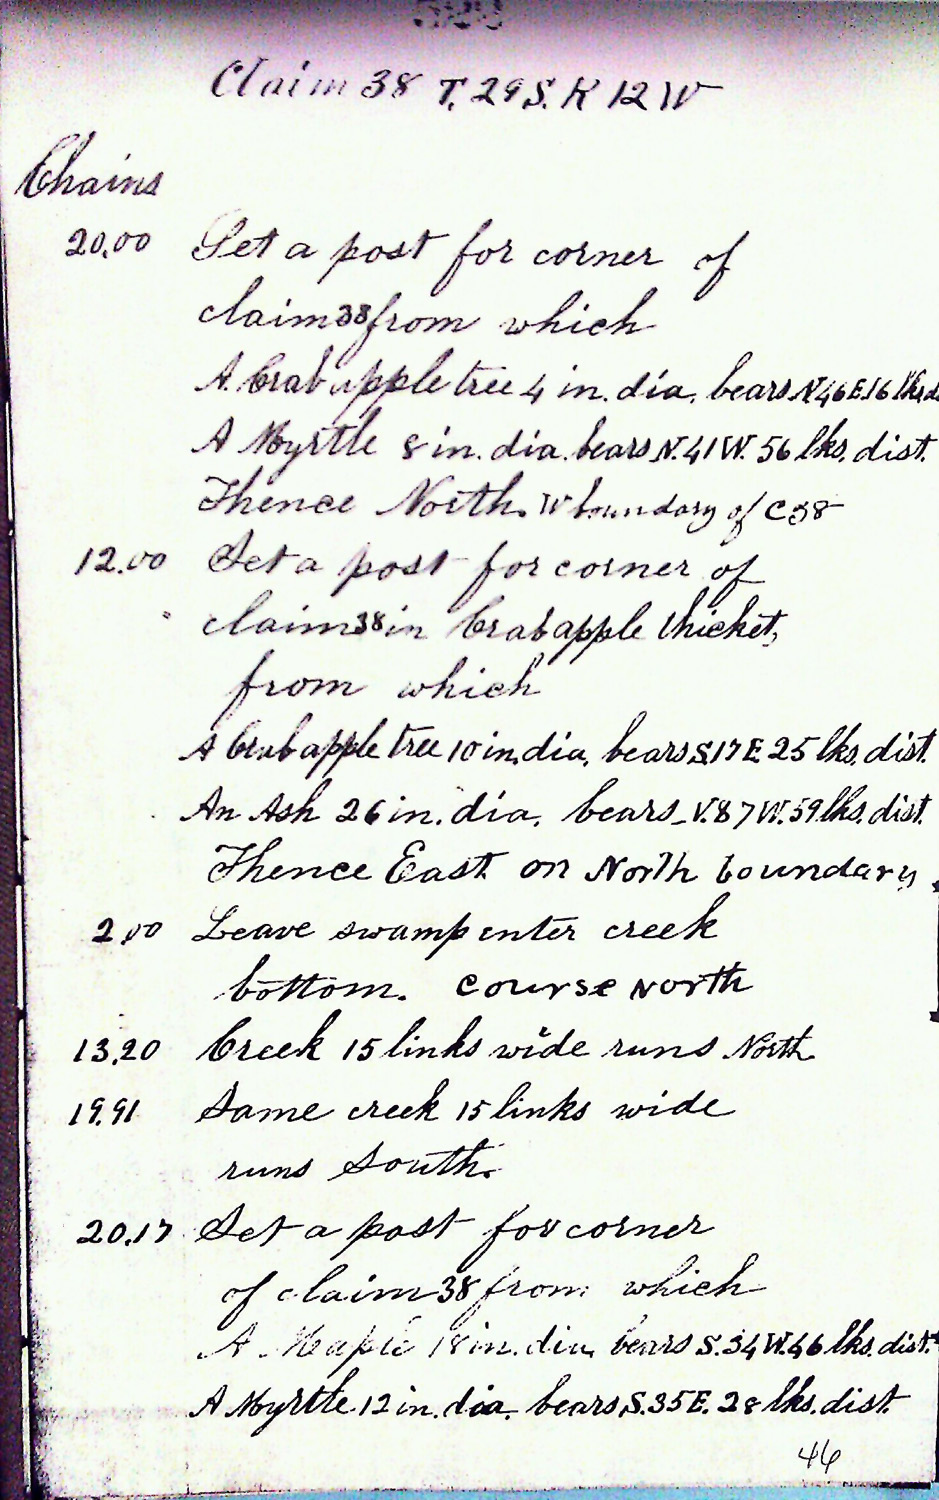 Claim 38 T. 29 S. R 12 W
Chains
20.00 Set a post for corner of
claim 38 from which
A Crab apple tree 4 in. dia. bears N46E.16 lks d
A Myrtle 8 in. dia. bears N.41W. 56 lks. dist.
Thence North. W boundary of C38
12.00 Set a post for corner of
claim 38 in Crab apple thicket,
from which
A Crab apple tree 10 in. dia. bears S.17E. 25 lks. dist.
An Ash 26 in. dia. bears N.87W. 59 lks. dist.
Thence East on North boundary
2.00 Leave swamp enter creek
bottom. Course North
13.20 Creek 15 links wide runs North.
19.91 Same creek 15 links wide
runs South.
20.17 Set a post for corner
of claim 38 from which
A Maple 18 in. dia. bears S.34W. 46 lks. dist.
A Myrtle 12 in. dia. bears S.35E. 28 lks. dist.
46